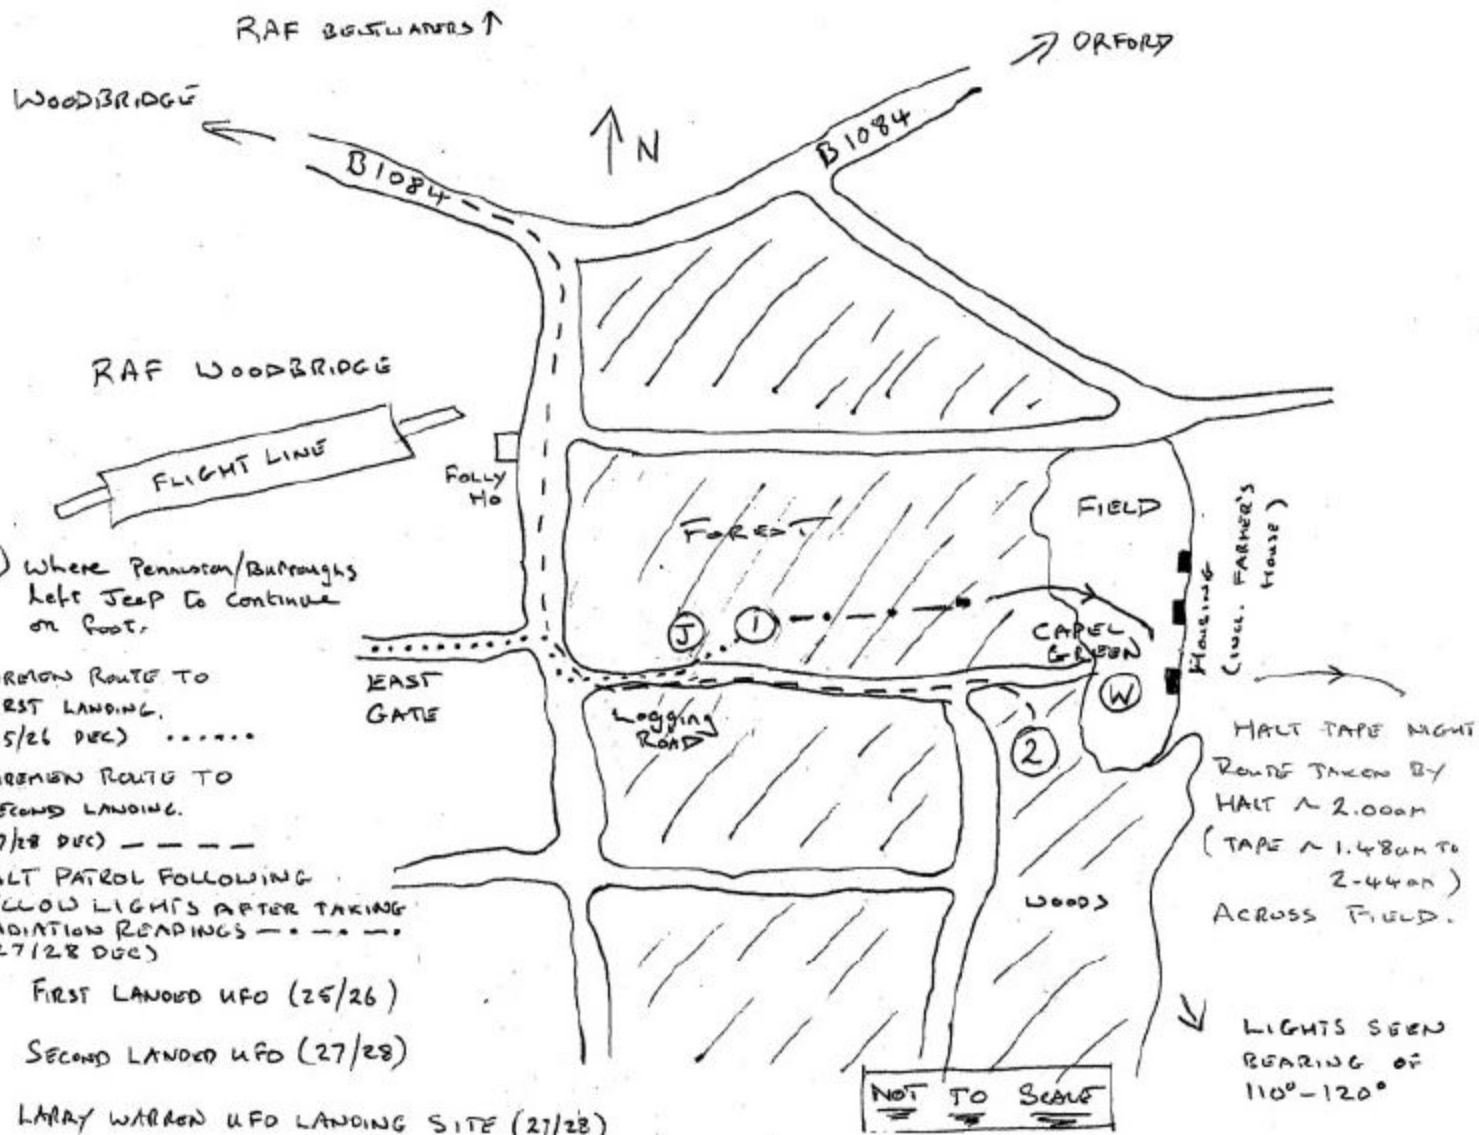 RAF BENTWATERS ↑
ORFORD
WOODBRIDGE
N
B1084
B1084
RAF WOODBRIDGE
FLIGHT LINE
FOLLY
HO
FIELD
FOREST
HOUSING
(INCL. FARMER'S
HOUSE)
) Where Penniston/Burroughs
Left Jeep to continue
on foot.
J
1
CAPEL
GREEN
W
2
EAST
GATE
Logging
ROAD
REMEN ROUTE TO
RST LANDING.
5/26 DEC) ••••••
REMEN ROUTE TO
ECOND LANDING.
7/28 DEC) — — — —
ALT PATROL FOLLOWING
LLOW LIGHTS AFTER TAKING
ADIATION READINGS — • — • — •
27/28 DEC)
FIRST LANDED UFO (25/26)
SECOND LANDED UFO (27/28)
LARRY WARREN UFO LANDING SITE (27/28)
HALT TAPE NIGHT
ROUTE TAKEN BY
HALT ~ 2.00am
(TAPE ~ 1.48am TO
2-44am)
ACROSS FIELD.
WOODS
LIGHTS SEEN
BEARING OF
110°-120°
NOT TO SCALE